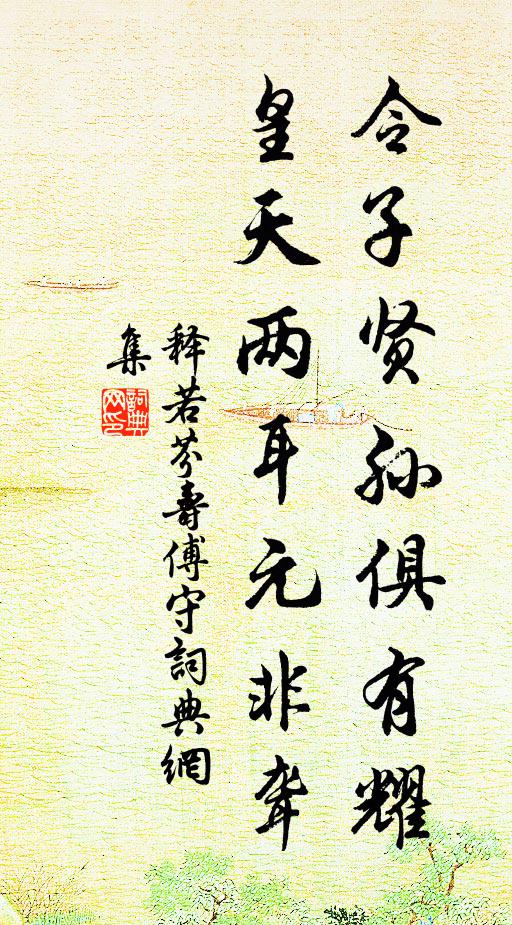 令子贤孙俱有耀
皇天两耳元非聋
释若芬寿傅守詞典網
集
詞典
网印